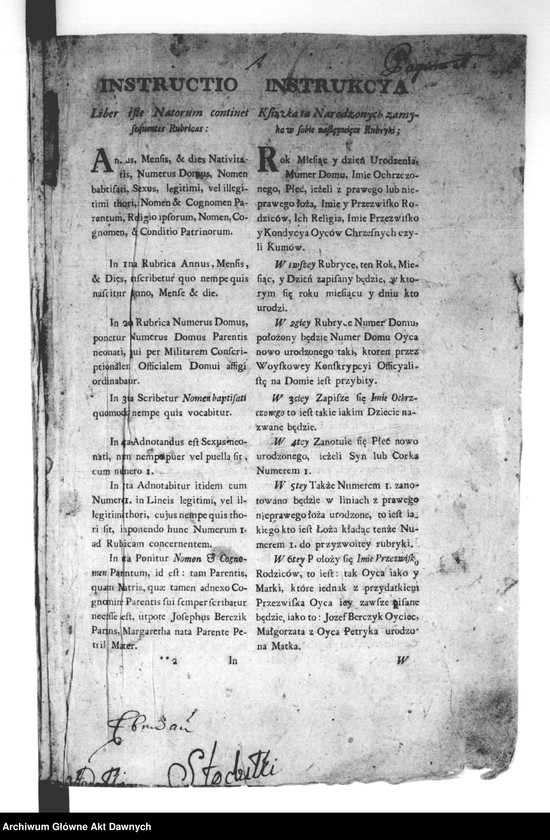 INSTRUCTIO
Liber iste Natorum continet
sequentes Rubricas:
Annus, Mensis, & dies Nativita-
tis, Numerus Domus, Nomen
babtisati, Sexus, legitimi, vel illegi-
timi thori, Nomen & Cognomen Pa-
rentum, Religio ipsorum, Nomen, Co-
gnomen, & Conditio Patrinorum.
In 1na Rubrica Annus, Mensis,
& Dies, inscribetur quo nempe quis
nascitur Anno, Mense & die.
In 2da Rubrica Numerus Domus,
ponetur Numerus Domus Parentis
neonati, qui per Militarem Conscri-
ptionalem Officialem Domui affigi
ordinabatur.
In 3tia Scribetur Nomen baptisati
quomodo nempe quis vocabitur.
In 4ta Adnotandus est Sexus neo-
nati, num nempe puer vel puella sit,
cum numero 1.
In 5ta Adnotabitur itidem cum
Numero 1. in Lineis legitimi, vel il-
legitimi thori, cujus nempe quis tho-
ri sit, imponendo hunc Numerum 1.
ad Rubricam concernentem.
In 6ta Ponitur Nomen & Cogno-
men Parentum, id est: tam Parentis,
quam Matris, quæ tamen adnexo Co-
gnomine Parentis sui semper scribatur
necesse est, utpote Josephus Berczik
Parens, Margaretha nata Parente Pe-
trik Mater.
**2 In
INSTRUKCYA
Książka ta Narodzonych zamy-
ka w sobie następuiące Rubryki;
Rok Miesiąc y dzień Urodzenia,
Numer Domu, Imie Ochrczo-
nego, Płeć, ieżeli z prawego lub nie-
prawego łoża, Imie y Przezwisko Ro-
dziców, Ich Religia, Imie Przezwisko
y Kondycya Oyców Chrzesnych czy-
li Kumów.
W 1wszey Rubryce, ten Rok, Mie-
siąc, y Dzień zapisany będzie, w kto-
rym się roku miesiącu y dniu kto
urodzi.
W 2giey Rubryce Numer Domu,
położony będzie Numer Domu Oyca
nowo urodzonego taki, ktoren przez
Woyskowey Konskrypcyi Officyali-
stę na Domie iest przybity.
W 3ciey Zapisze się Imie Ochrz-
czonego to iest takie iakim Dziecie na-
zwane będzie.
W 4tey Zanotuie się Płeć nowo
urodzonego, ieżeli Syn lub Corka
Numerem 1.
W 5tey Także Numerem 1. zano-
towano będzie w liniach z prawego
nieprawego łoża urodzone, to iest ia-
kiego kto iest Łoża kładąc tenże Nu-
merem 1. do przyzwoitey rubryki.
W 6tey Położy się Imie Przezwisko
Rodziców, to iest: tak Oyca iako y
Matki, które iednak z przydatkiem
Przezwiska Oyca iey zawsze pisane
będzie, iako to: Jozef Berczyk Oyciec,
Małgorzata z Oyca Petryka urodzo-
na Matka.
W
Archiwum Główne Akt Dawnych